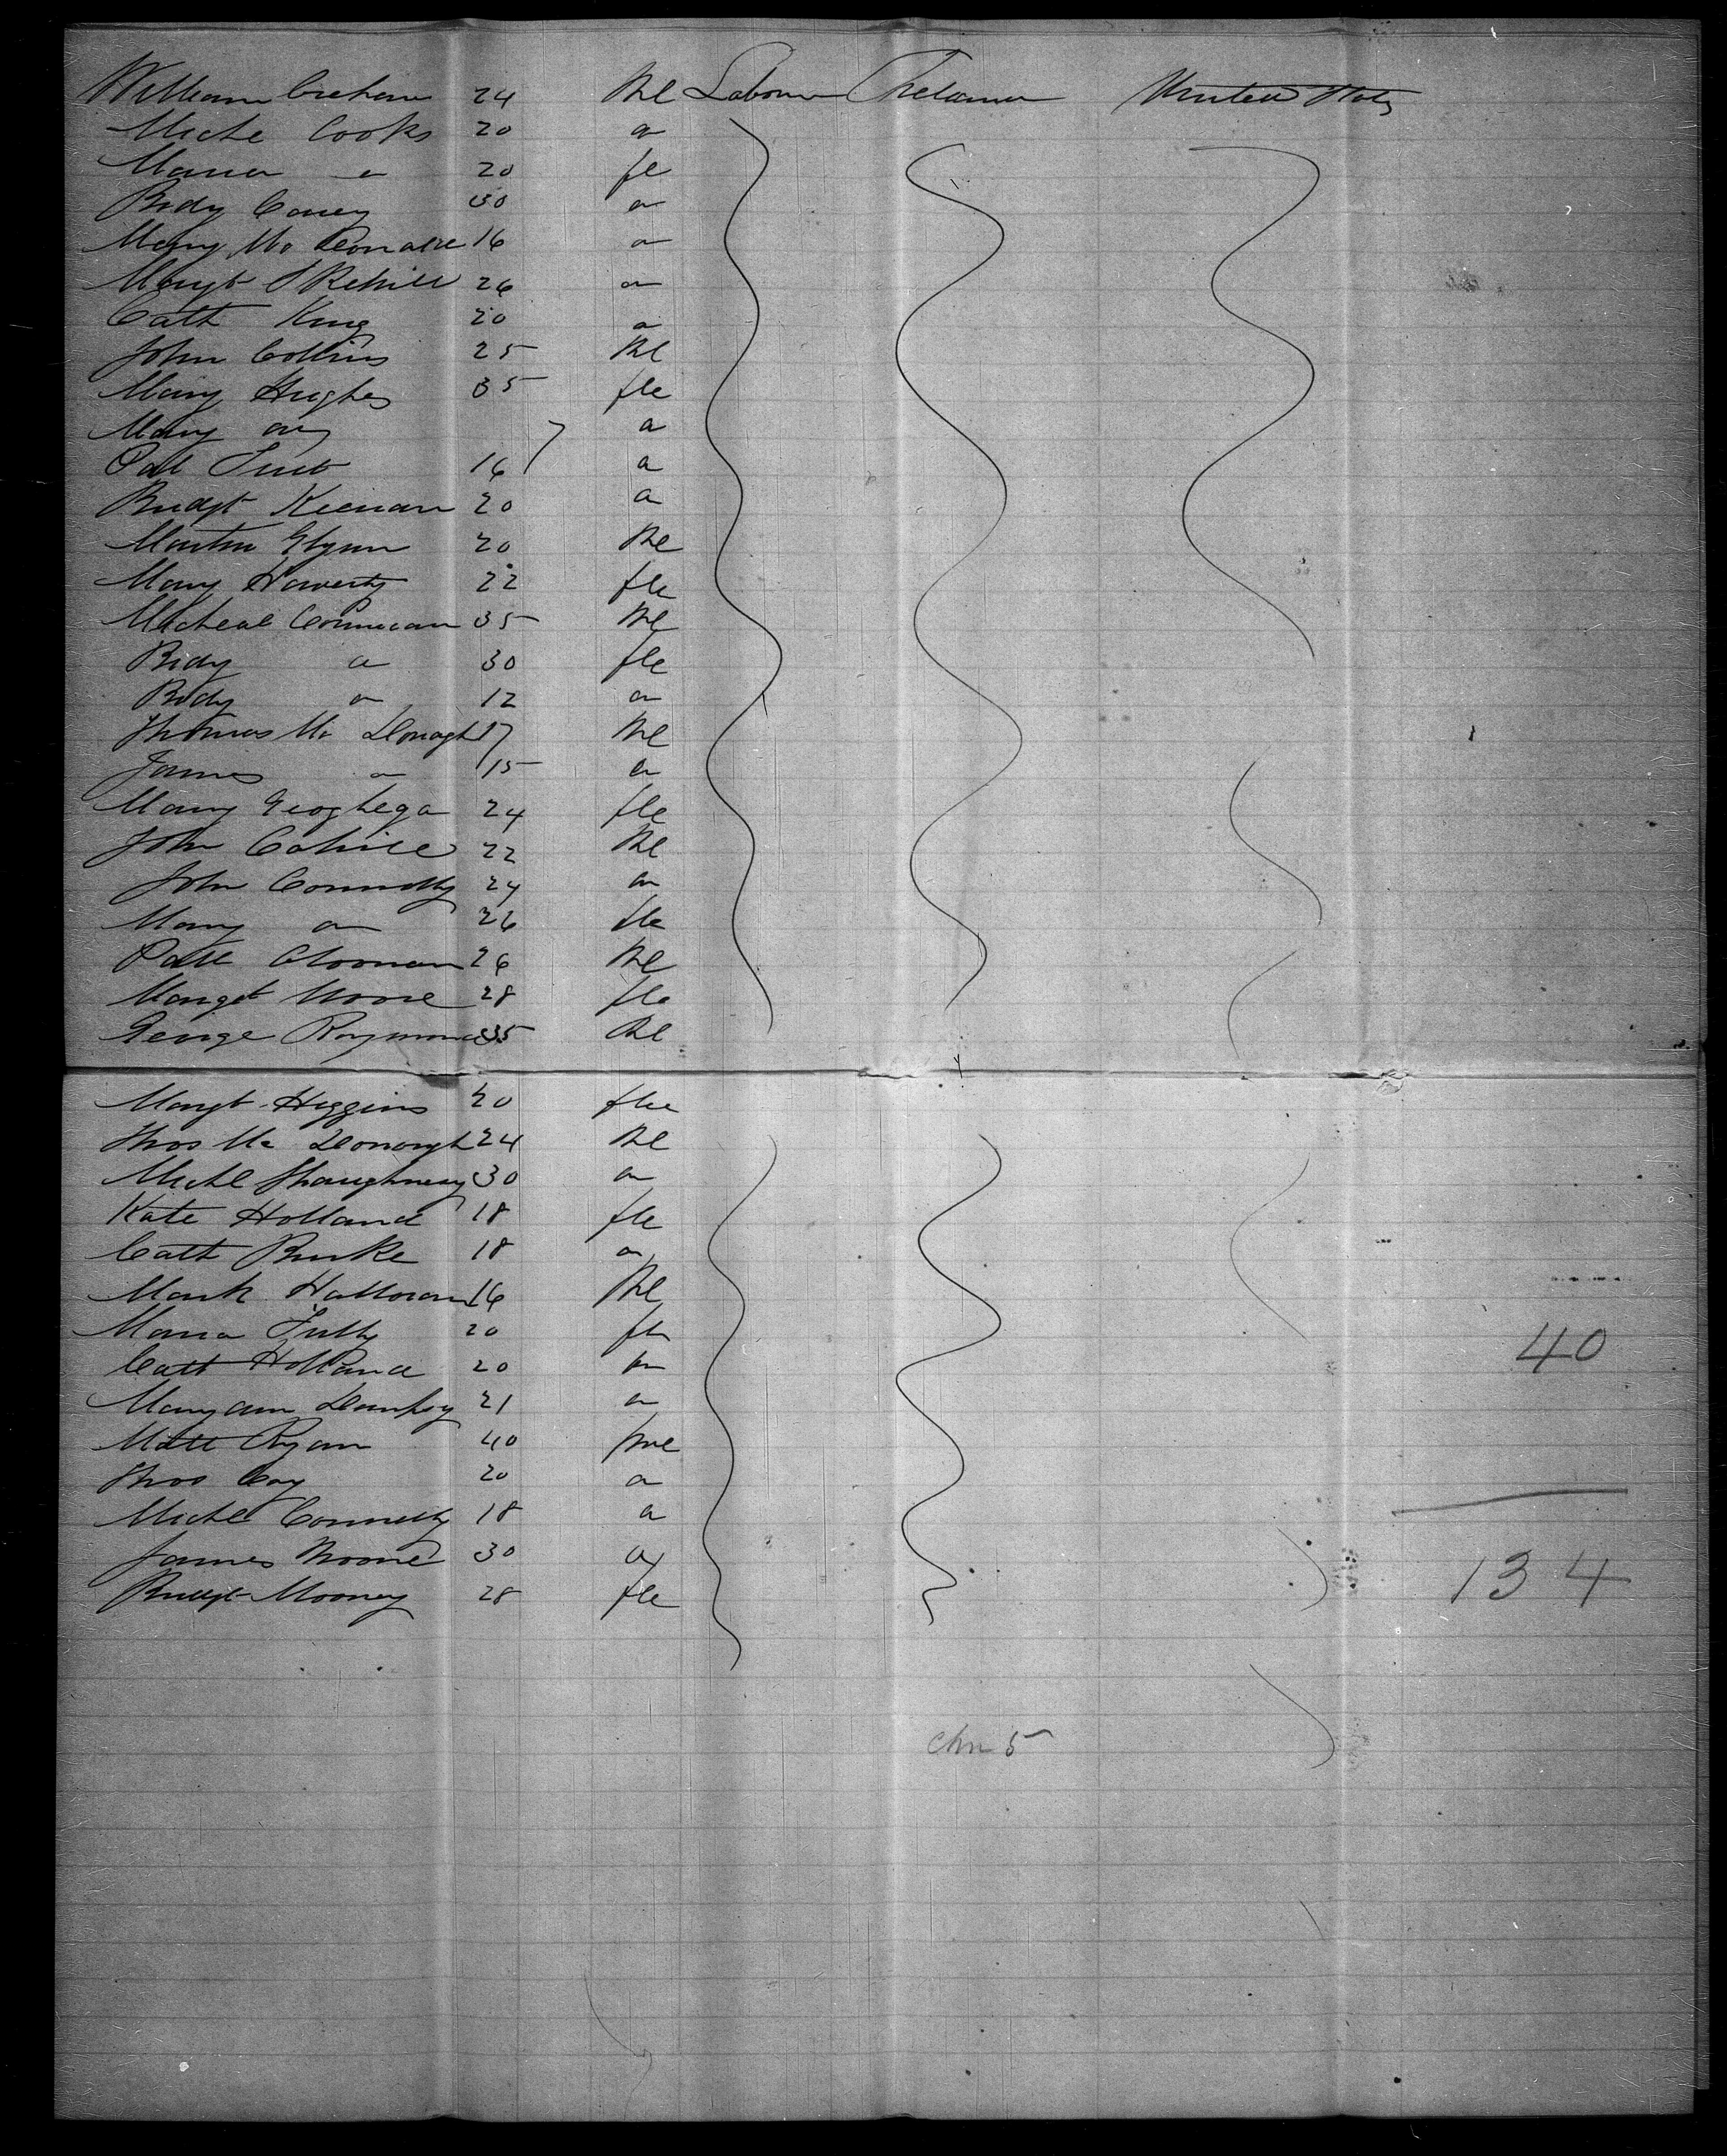 William Crehan 24 Ml Labourer Ireland United States
Michl Cooks 20 "
Maria " 20 fle
Bidy Coney 30 "
Mary Mc Donald 16 "
Margt Skehill 26 "
Cath King 20 "
John Collins 25 Ml
Mary Hughes 35 fle
Mary " 7 "
Pat 16 "
Bridgt Keenan 20 "
Martin Glynn 20 Ml
Mary Haverty 22 fle
Micheal 35 Ml
Bidy " 30 fle
Bidy " 12 "
Thomas Mc Donagh 17 Ml
James " 15 "
Mary Geoghega 24 fle
John Cahill 22 Ml
John Connolly 24 "
Mary " 26 fle
Patk Cloonan 26 Ml
Marget Moore 28 fle
George Raymond 35 Ml
Margt Higgins 20 fle
Thos Mc Donough 24 Ml
Michl Shaughnessy 30 "
Kate Holland 18 fle
Cath Burke 18 "
Mark Halloran 16 Ml
Maria Tully 20 fle
Cath Holland 20 "
40
Mary ann Dempsy 21 "
Matt Ryan 40 Ml
Thos Coy 20 "
Michl Connolly 18 "
James Moore 30 "
134
Bridgt Mooney 28 fle
Chn 5